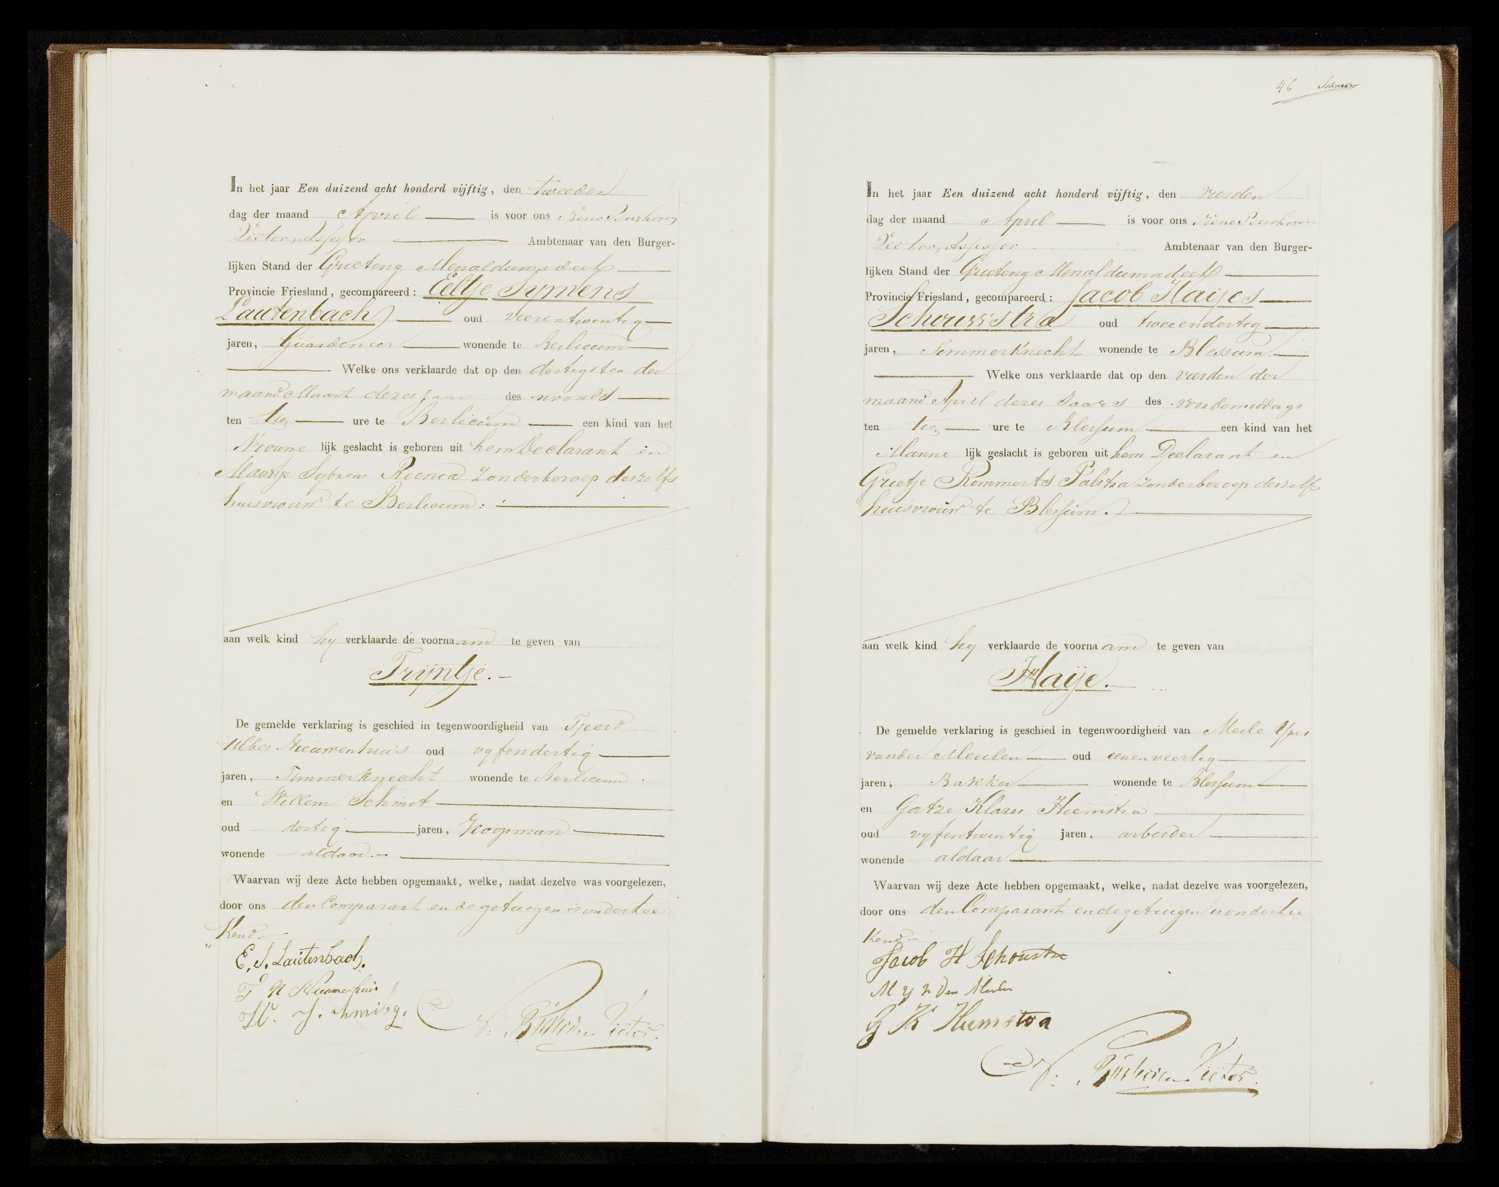 In het jaar Een duizend acht honderd vijftig, den tweeden
dag der maand April is voor ons
Ambtenaar van den Burger-
lijken Stand der Grieteny Menaldumadeel
Provincie Friesland, gecompareerd: Eeltje Symens
Lautenbach oud vierentwintig
jaren, Guardenier wonende te Berlicum
Welke ons verklaarde dat op den dertigsten der
maand Maart dezes jaars des avonds
ten ure te Berlicum een kind van het
Vrouwe lijk geslacht is geboren uit hem Declarant en
Maartje Sybren zonder beroep deszelfs
huisvrouw te Berlicum:
aan welk kind hy verklaarde de voornaam te geven van
Trijntje.
De gemelde verklaring is geschied in tegenwoordigheid van Tjeerd
Ulbes Nieuwenhuis oud vyfendertig
jaren, Timmerknecht wonende te Berlicum
en Willem
oud dertig jaren, Koopman
wonende aldaar
Waarvan wij deze Acte hebben opgemaakt, welke, nadat dezelve was voorgelezen,
door ons den Comparant en de getuigen is onderttee
kend
E. S. Lautenbach.
46
In het jaar Een duizend acht honderd vijftig, den vierden
dag der maand April is voor ons
Ambtenaar van den Burger-
lijken Stand der Grieteny Menaldumadeel
Provincie Friesland, gecompareerd: Jacob Haijes
Schoustra oud tweeendertig
jaren, Timmerknecht wonende te Blessum
Welke ons verklaarde dat op den vierden der
maand April dezes Jaars des voordemiddags
ten ure te Blessum een kind van het
Manne lijk geslacht is geboren uit hem Declarant en
Grietje Rommerts Palstra zonder beroep deszelfs
huisvrouw te Blessum.
aan welk kind hy verklaarde de voornaam te geven van
Haije.
De gemelde verklaring is geschied in tegenwoordigheid van Meile Ypes
van der Meulen oud eenenveertig
jaren, Bakker wonende te Blessum
en Gatze Klazes Heemstra
oud vyfentwintig jaren, arbeider
wonende aldaar
Waarvan wij deze Acte hebben opgemaakt, welke, nadat dezelve was voorgelezen,
door ons den Comparant en de getuigen is ondertee
kend
Jacob H Schoustra
M Y v den Meulen
G K Heemstra